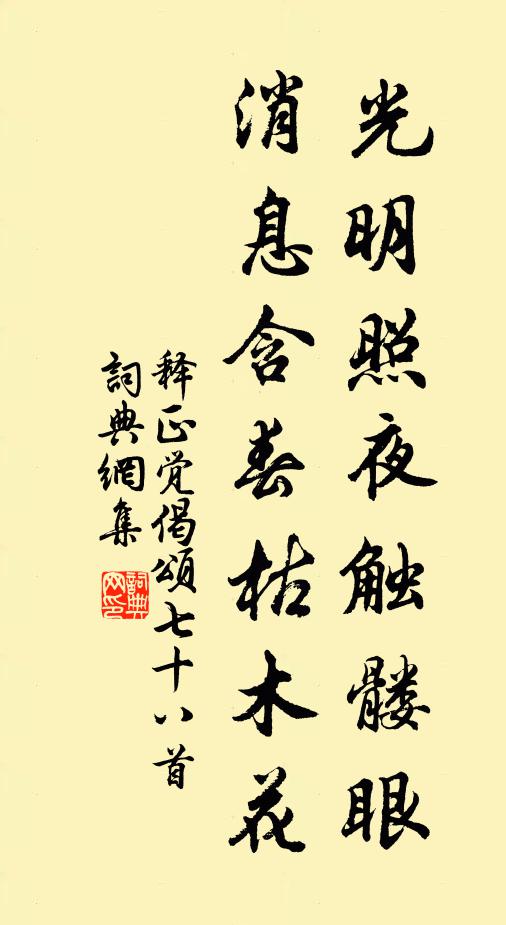 光明照夜触髅眼
消息含春枯木花
释正觉偈颂七十八首
詞典網集
詞典网印